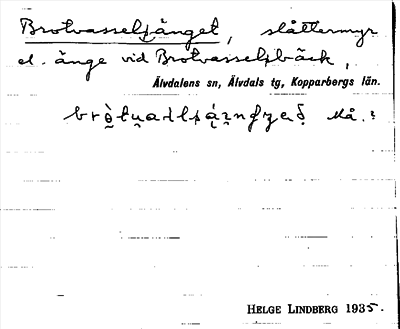 Brotvasselsänget, slåttermyr
el. änge vid Brotvasselsbäck,
Älvdalens sn, Älvdals tg, Kopparbergs län.
Må.:
HELGE LINDBERG 1935.